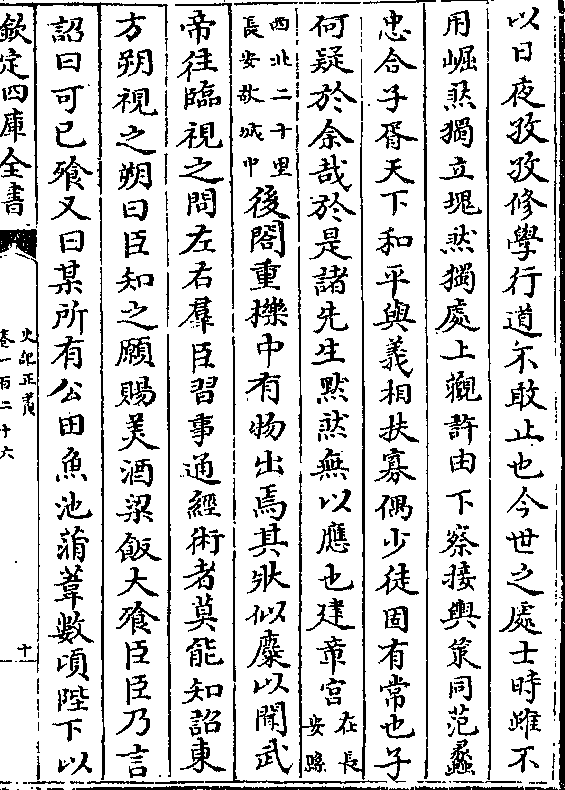 以日夜孜孜修學行道不敢止也今世之處士時雖不
用崛然獨立塊然獨處上觀許由下察接輿策同范蠡
忠合子胥天下和平與義相扶寡偶少徒固有常也子
何疑於余哉於是諸先生默然無以應也建章宮在長安縣
西北二十里長安故城中後閤重櫟中有物出焉其狀似麋以聞武
帝往臨視之問左右羣臣習事通經術者莫能知詔東
方朔視之朔曰臣知之願賜美酒粱飯大飱臣臣乃言
詔曰可已飱又曰某所有公田魚池蒲葦數頃陛下以
欽定四庫全書
史記正義
卷一百二十六
十